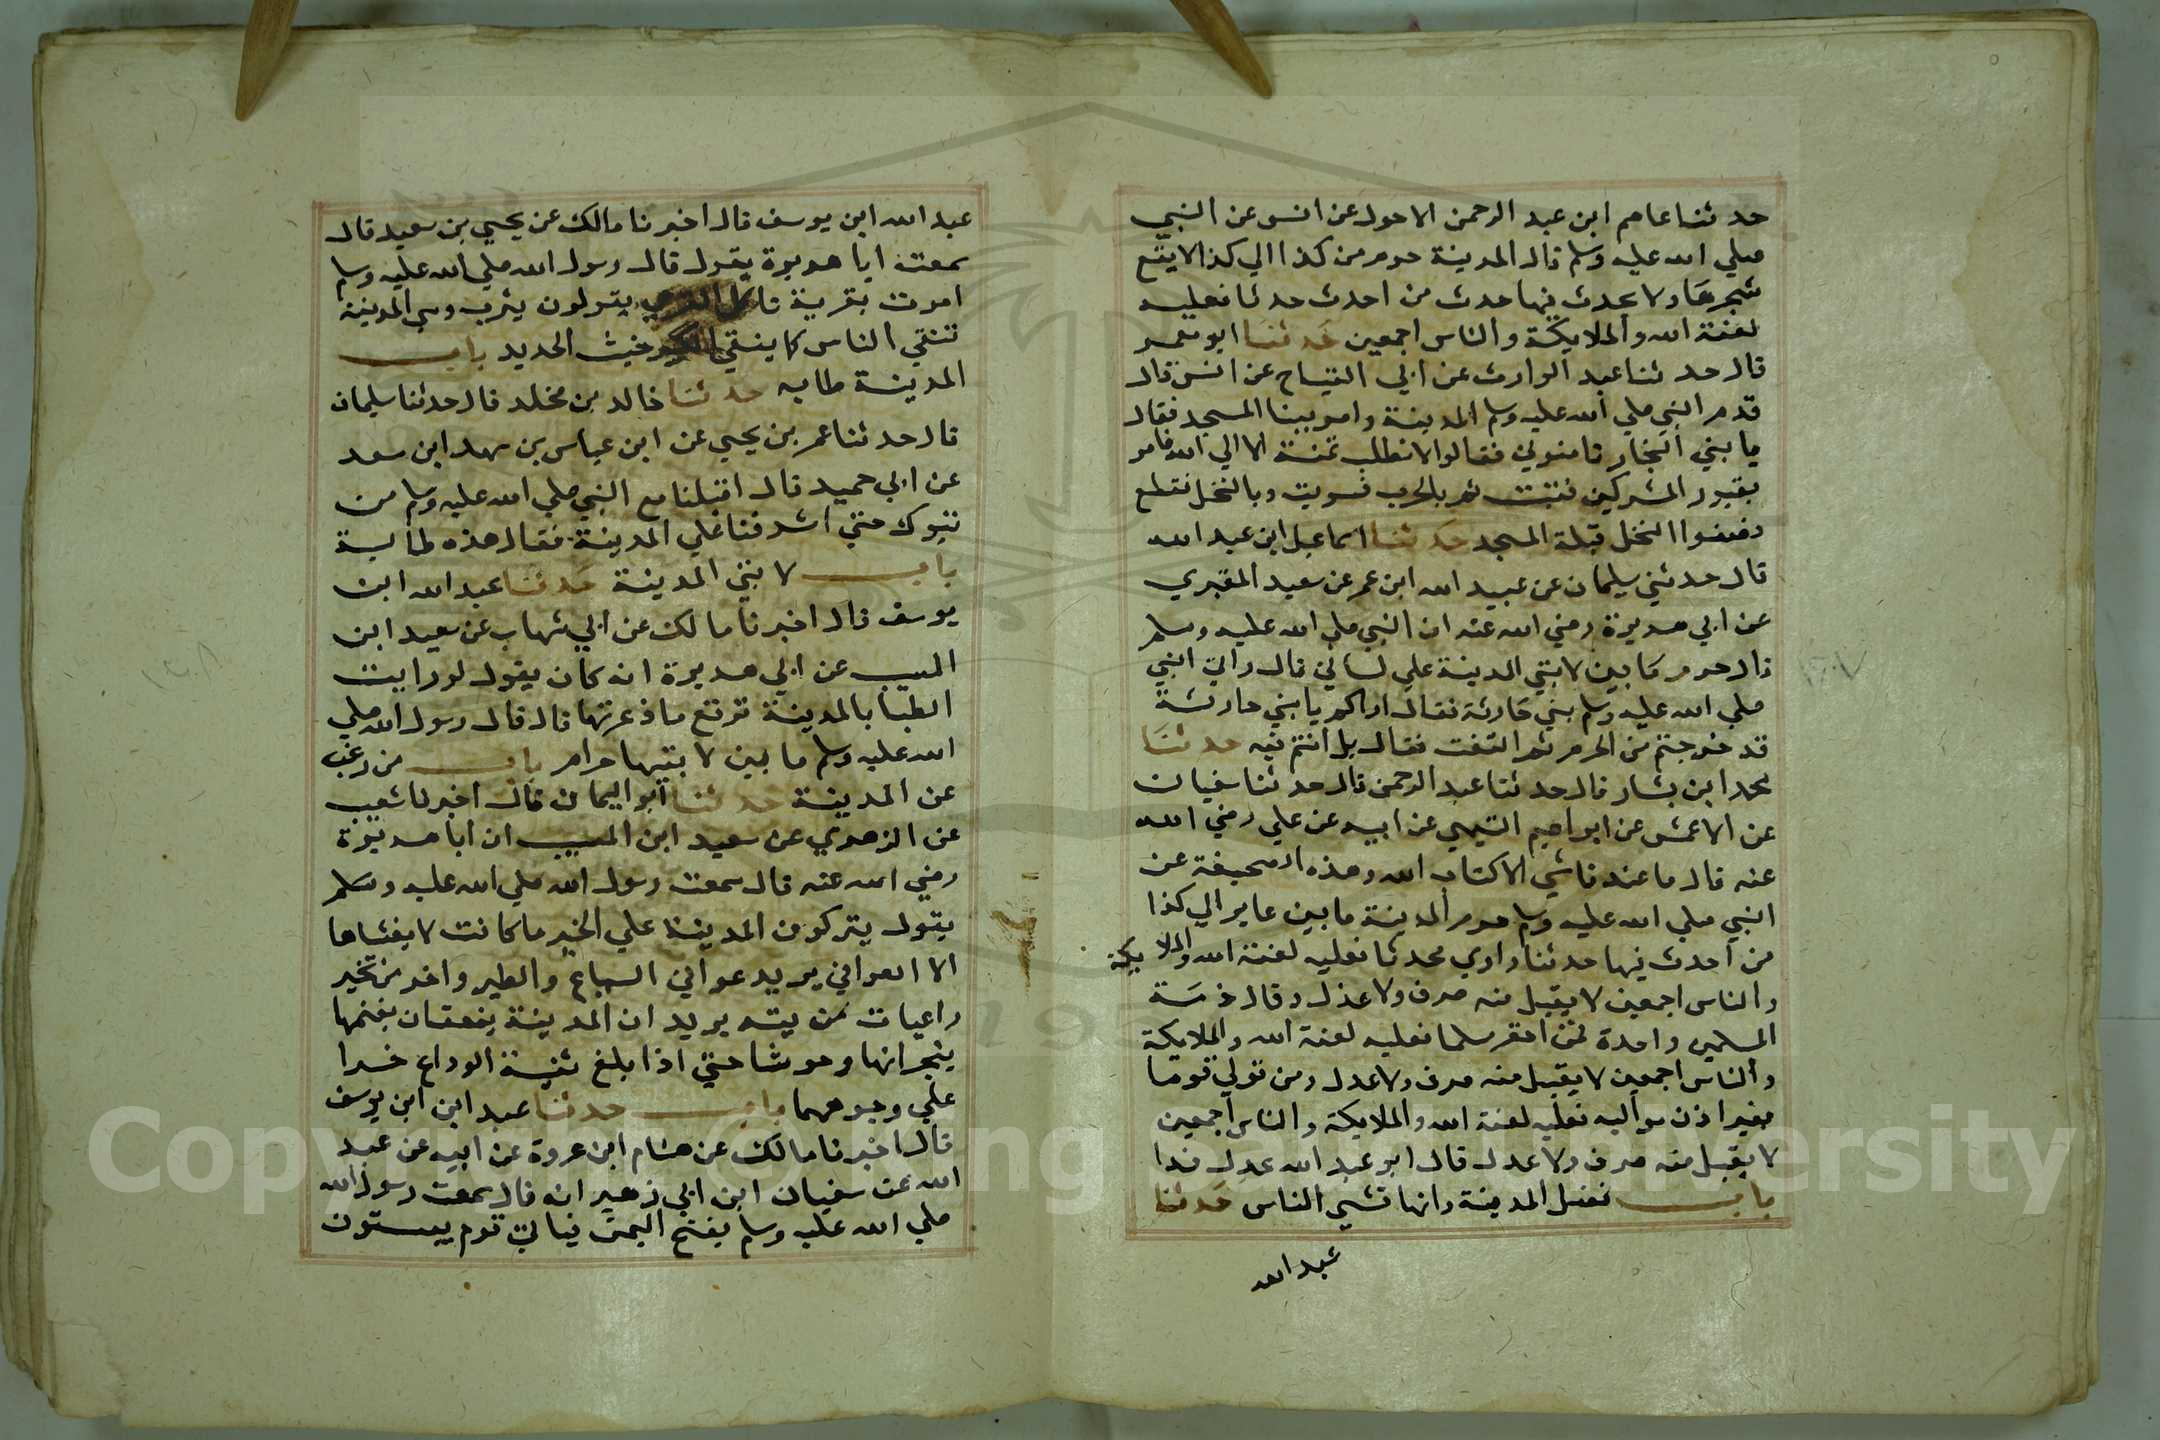 حدثنا عاصم ابن عبد الرحمن الاحول عن انس عن النبي
صلي الله عليه وسلم قال المدينة حرم من كذا الي كذا لا يقطع
شجرها ولا يحدث فيها حدث من احدث حدثا فعليه
لعنة الله والملايكة والناس اجمعين حدثنا ابو معمر
قال حدثنا عبد الوارث عن ابي التياح عن انس قال
قدم النبي صلي الله عليه وسلم المدينة وامر ببنا المسجد فقال
يا بني النجار ثامنوني فقالوا لا نطلب ثمنة الا الي الله فامر
بقبور المشركين فنبشت ثم بالخرب فسويت وبالنخل فقطع
فصفوا النخل قبلة المسجد حدثنا اسماعيل ابن عبد الله
قال حدثني سليمان عن عبيد الله ابن عمر عن سعيد المقبري
عن ابي هريرة رضي الله عنه ان النبي صلي الله عليه وسلم
قال حرم ما بين لابتي المدينة علي لساني قال واتي النبي
صلي الله عليه وسلم بني حارثة فقال اراكم يا بني حارثة
قد خرجتم من الحرم ثم التفت فقال بل انتم فيه حدثنا
محمد ابن بشار قال حدثنا عبد الرحمن قال حدثنا سفيان
عن الاعمش عن ابراهيم التيمي عن ابيه عن علي رضي الله
عنه قال ما عندنا شي الا كتاب الله وهذه الصحيفة عن
النبي صلي الله عليه وسلم حرم المدينة ما بين عاير الي كذا
من احدث فيها حدثنا واوي محدثا فعليه لعنة الله والملايكة
والناس اجمعين لا يقبل منه صرف ولا عذل وقال ذمة
المسلمين واحدة فمن اخفر مسلما فعليه لعنة الله والملايكة
والناس اجمعين لا يقبل منه صرف ولا عدل ومن تولي قوما
بغير اذن مواليه فعليه لعنة الله والملايكة والناس اجمعين
لا يقبل منه صرف ولا عدل قال ابو عبد الله عدل فدا
باب فضل المدينة وانها تنفي الناس حدثنا
عبد الله
١٢٠٧
عبد الله ابن يوسف قال اخبرنا مالك عن يحيي بن سعيد قال
سمعت ابا هريرة يقول قال رسول الله صلي الله عليه وسلم
امرت بقرية تاكل القري يقولون يثرب وهي المدينة
تنقي الناس كما ينقي الكير خبث الحديد باب
المدينة طابه حدثنا خالد بن مخلد قال حدثنا سليمان
قال حدثنا عمر بن يحيي عن ابن عباس بن سهد ابن سعد
عن ابي حميد قال اقبلنا مع النبي صلي الله عليه وسلم من
تبوك حتي اشرفنا علي المدينة فقال هذه طابة
باب لابتي المدينة حدثنا عبد الله ابن
يوسف قال اخبرنا مالك عن ابي شهاب عن سعيد ابن
المسيب عن ابي هريرة انه كان يقول لو رايت
الظبا بالمدينة ترتع ما ذعرتها قال قال رسول الله صلي
الله عليه وسلم ما بين لابتيها حرام باب من رغب
عن المدينة حدثنا ابو اليمان قال اخبرنا شعيب
عن الزهري عن سعيد ابن المسيب ان ابا هريرة
رضي الله عنه قال سمعت رسول الله صلي الله عليه وسلم
يقول يتركون المدينة علي الخير ما كانت لا يغشاها
الا العوافي يريد عوافي السباع والطير واخر من تخير
راعيات من بيته يريد ان المدينة ينعقان بغنمها
ينجرانها وحوشا حتي اذا بلغ ثنية الوداع خرا
علي وجوههما باب حدثنا عبد ابن ابن يوسف
قال اخبرنا مالك عن هشام ابن عروة عن ابيه عن عبد
الله عن سفيان ابن ابي زهير انه قال سمعت رسول الله
صلي الله عليه وسلم يفتح اليمن فياتي قوم يبسون
١٢٠٨
Copyright © King Saud University